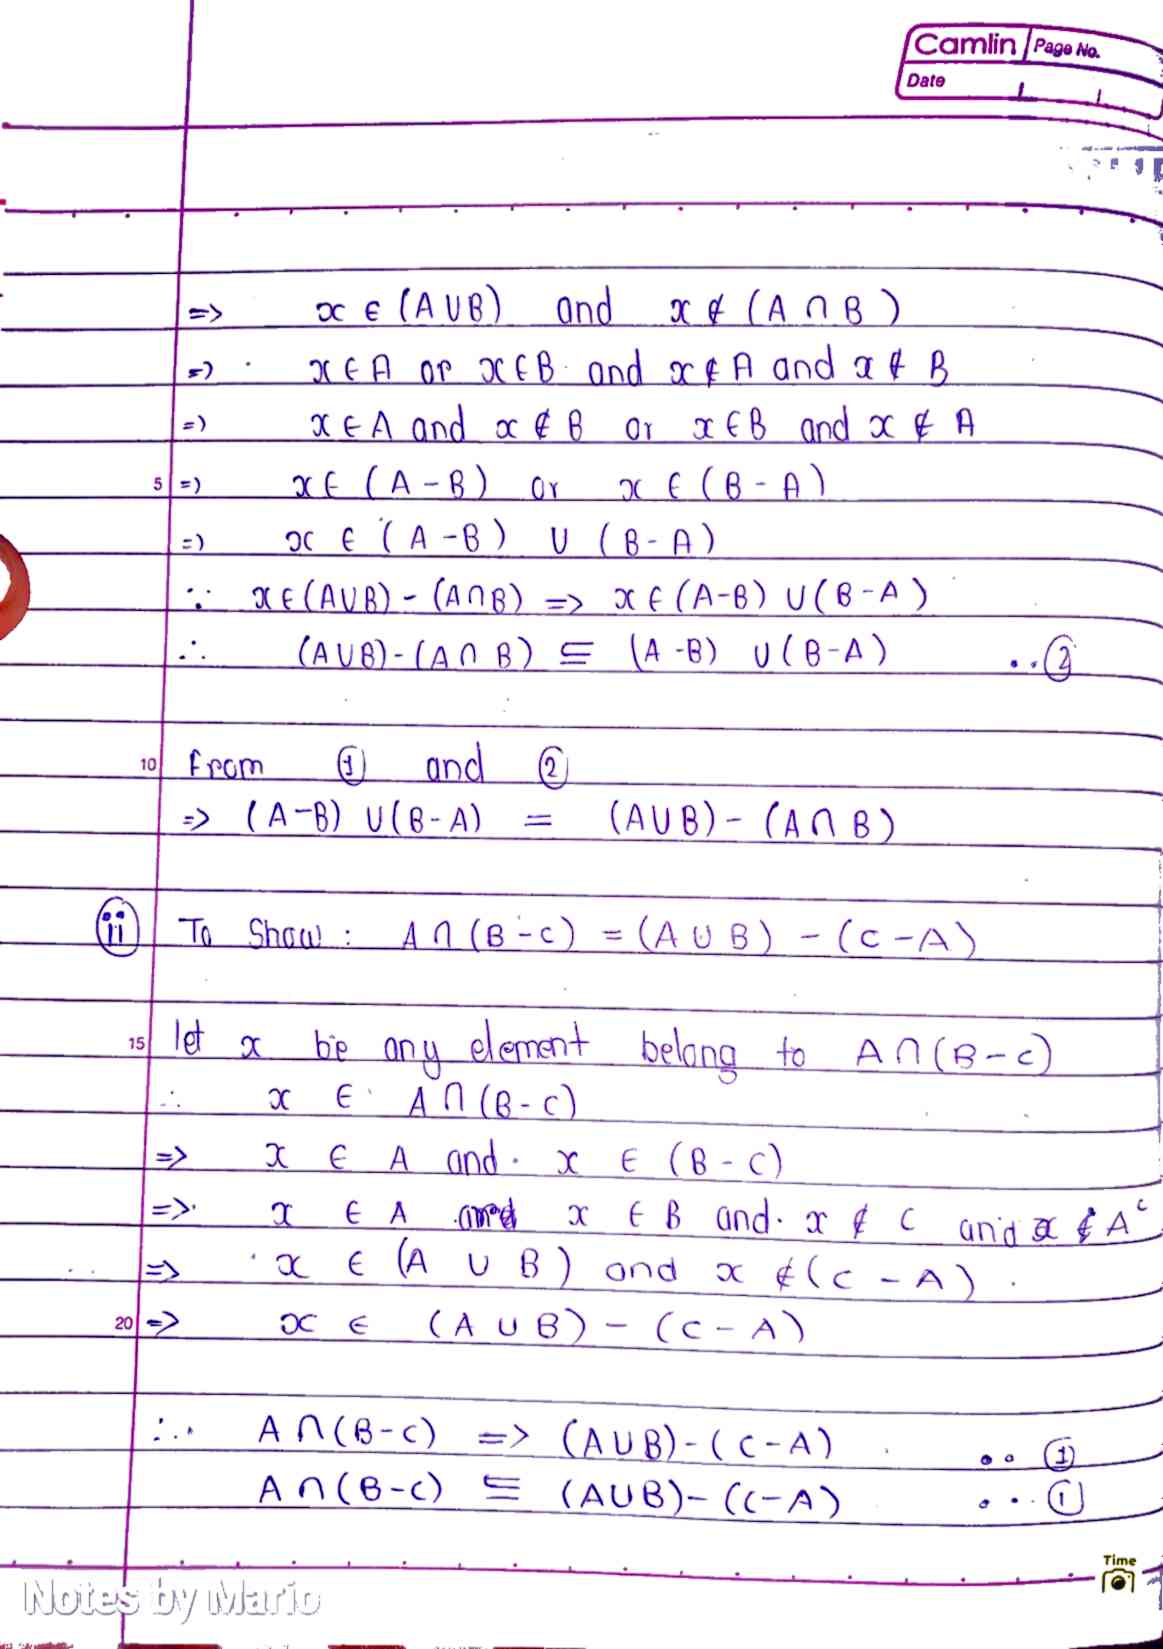 Camlin Page No.
Date
=> x ∈ (A ∪ B) and x ∉ (A ∩ B)
=> x ∈ A or x ∈ B and x ∉ A and x ∉ B
=> x ∈ A and x ∉ B or x ∈ B and x ∉ A
5 => x ∈ (A - B) or x ∈ (B - A)
=> x ∈ (A - B) ∪ (B - A)
∵ x ∈ (A∪B) - (A∩B) => x ∈ (A-B) ∪ (B-A)
∴ (A∪B) - (A∩B) ⊆ (A-B) ∪ (B-A) ..②
10 From ① and ②
=> (A-B) ∪ (B-A) = (A∪B) - (A∩B)
ii To Show : A∩(B-C) = (A∪B) - (C-A)
15 let x be any element belong to A∩(B-C)
∴ x ∈ A∩(B-C)
=> x ∈ A and x ∈ (B-C)
=> x ∈ A and x ∈ B and x ∉ C and x ∉ Aᶜ
=> x ∈ (A ∪ B) and x ∉ (C - A)
20 => x ∈ (A ∪ B) - (C - A)
∴ A∩(B-C) => (A∪B) - (C-A) .. ①
A∩(B-C) ⊆ (A∪B) - (C-A) ... ①
Time
Notes by Mario